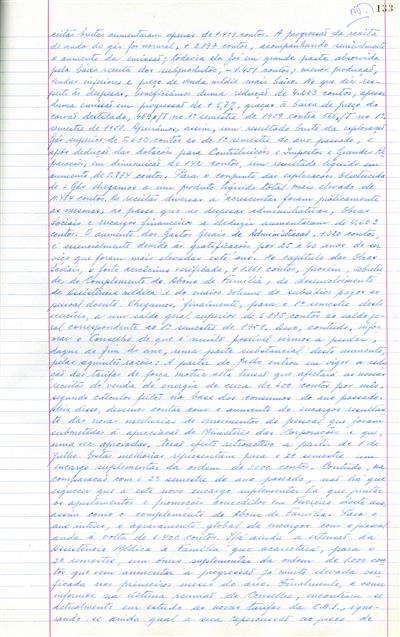 133
ceitas brutas aumentaram apenas de 1.429 contos. A progressão da receita
de ando de gás foi normal, + 2.897 contos, acompanhando sensivelmente
o aumento da emissão; todavia ela foi em grande parte absorvida
pela baixa receita dos subprodutos, - 1.451 contos; menor produção,
vendas inferiores e preço de venda médio mais baixo. No que diz res-
peito às despesas, beneficiámos duma redução de 4.223 contos, apesar
duma emissão em progressão de + 5,7%, graças à baixa de preço do
carvão destilado, no 1º semestre de 1959 contra no 1º se-
mestre de 1958. Apurámos, assim, um resultado bruto da exploração
Gás superior de 5.652 contos ao do 1º semestre do ano passado, e
após dedução das dotações para Contribuições e Impostos e Grandes Re-
parações, em diminuição de 142 contos, um resultado líquido em
aumento de 5.794 contos. Para o conjunto das explorações Electricidade
e Gás chegamos a um produto líquido total mais elevado de
contos. As receitas diversas a acrescentar foram pràticamente
as mesmas, ao passo que as despesas administrativas, Obras
Sociais e encargos financeiros a deduzir aumentaram de 4.603
contos. O aumento dos Gastos Gerais de Administração, + 320 contos,
é essencialmente devido às gratificações por 25 e 40 anos de ser-
viço que foram mais elevadas este ano. No capítulo das Obras
Sociais, o forte acréscimo verificado, + 1.661 contos, provém, sobretu-
do, do Complemento do Abono de Família, do desenvolvimento
da assistência médica e do maior volume de subsídios pagos ao
pessoal doente. Chegamos, finalmente, para o 1º semestre deste
exercício, a um saldo geral superior de 6.285 contos ao saldo ge-
ral correspondente ao 1º semestre de 1958. Devo, contudo, infor-
mar o Conselho de que é muito possível virmos a perder,
daqui ao fim do ano, uma parte substancial deste aumento,
pelas seguintes razões: A partir de Julho entrou em vigor a redu-
ção das tarifas de força motriz alta tensão que afectará as nossas
receitas de venda de energia de cerca de 400 contos por mês,
segundo cálculos feitos na base dos consumos do ano passado.
Além disso, devemos contar com o aumento de encargos resultan-
te das novas melhorias de vencimentos do pessoal que foram
submetidas à apreciação do Ministério das Corporações e que,
uma vez aprovadas, terão efeito retroactivo a partir de 1 de
Julho. Estas melhorias representam para o 2º semestre um
encargo suplementar da ordem de 2.000 contos. Contudo, na
comparação com o 2º semestre do ano passado, não há que
esquecer que a este novo encargo suplementar há que juntar
os ajustamentos e promoções concedidos em Fevereiro deste ano,
assim como o complemento do Abono de Família. Para o
ano inteiro, o agravamento global de encargos com o pessoal
anda à volta de 6.400 contos. Há ainda a extensão da
Assistência Médica à Família que acarretará, para o
2º semestre, um ónus suplementar da ordem de 1.000 con-
tos que vem aumentar a progressão já muito elevada veri-
ficada nos primeiros meses do ano. Finalmente, e como
informei na última reunião do Conselho, encontram-se
activamente em estudo as novas tarifas da C.N.E., igno-
rando-se ainda qual a sua repercussão no preço de